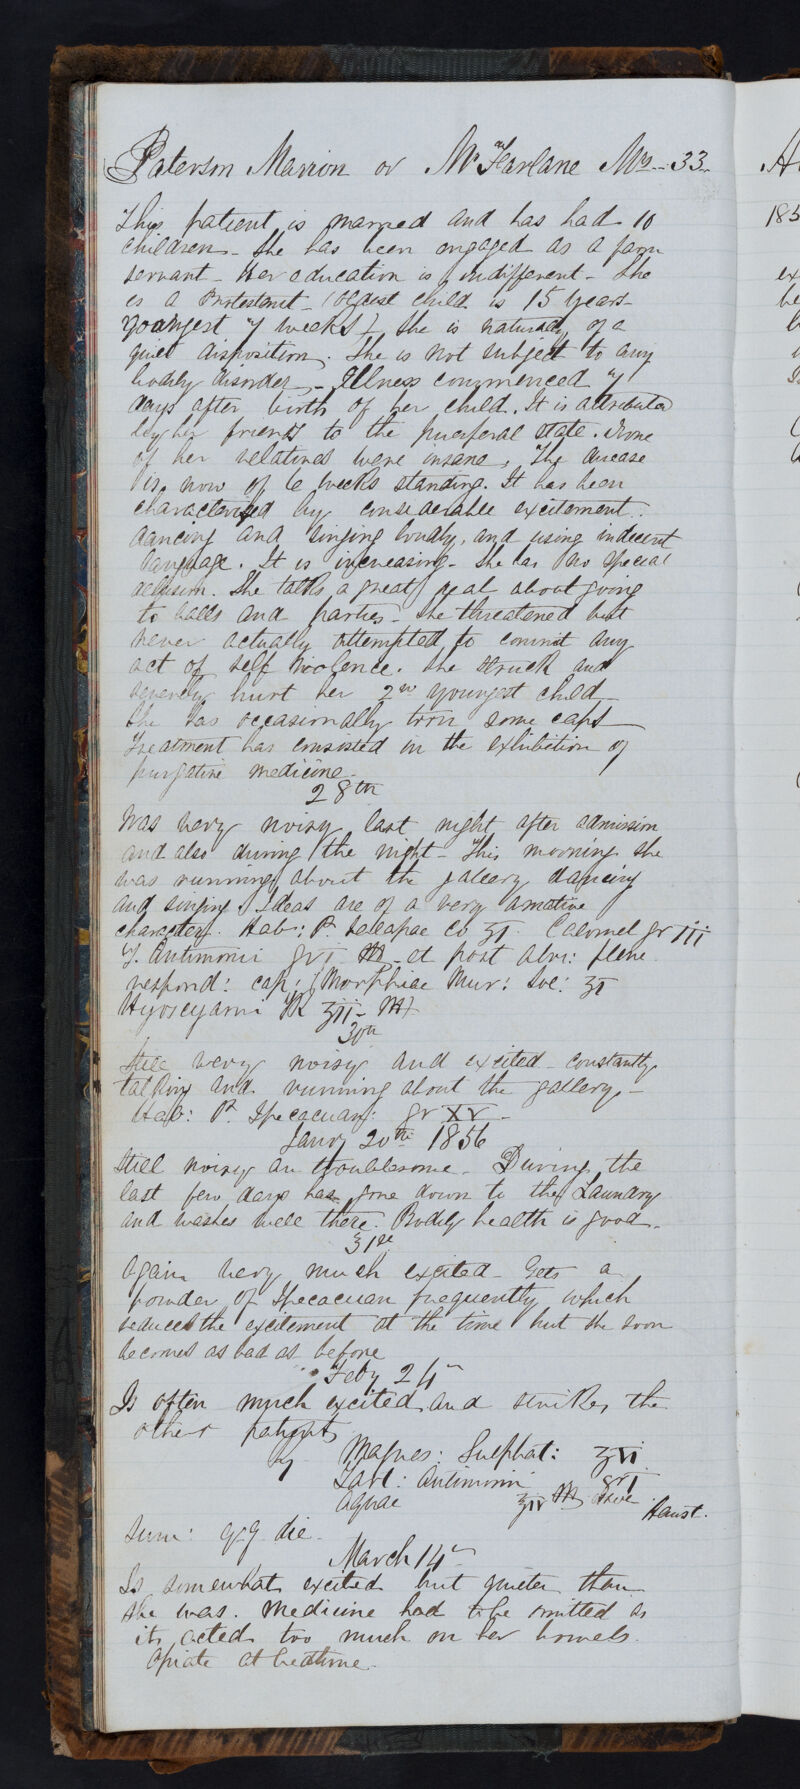 Paterson Marrion or McFarlane Mrs - 33
This patient is married and has had 10
children - She has been engaged as a farm
servant - Her education is indifferent - She
is a Protestant - (Oldest child is 15 years
youngest 7 weeks) She is naturally of a
quiet disposition. She is not subject to any
bodily disorder. - Illness commenced 7
days after birth of her child. It is attributed
by her friends to the puerperal state. None
of her relatives were insane. The disease
is now of 6 weeks standing. It has been
characterised by considerable excitement
dancing and singing loudly, and using indecent
language. It is increasing - She has no special
delusion. She talks a great deal about going
to balls and parties - She threatened but
never actually attempted to commit any
act of self violence. She struck and
severely hurt her 2nd youngest child
She has occasionally torn some caps
Treatment has consisted in the exhibition of
purgative medicine.
28th
Was very noisy last night after admission
and also during the night - This morning she
was running about the gallery dancing
and singing. Ideas are of a very amative
character. Hab: P. Jalapae Co ʒi. Calomel gr iii
T. Antimonii gr i M - et post alvi: plene
respond: cap: (Morphiae Mur: Sol: ʒi
Hyoscyami TR ʒii - M)
30th
Still very noisy and excited - constantly
talking and running about the gallery -
Hab: P. Ipecacuan: gr XV -
Jany 20th 1856
Still noisy an troublesome - During the
last few days has gone down to the Laundry
and washes well there. Bodily health is good -
31st
Again very much excited - Gets a
powder of Ipecacuan frequently which
reduces the excitement at the time but she soon
becomes as bad as before
Feby 24th
Is often much excited and strikes the
other patients
Magnes: Sulphat: ʒvi
Tart: Antimonii gr i
Aquae ʒiv M
Haust.
Sum: die -
March 14th
Is somewhat excited but quieter than
she was. Medicine had to be omitted as
it acted too much on her bowels.
Opiate at bedtime.